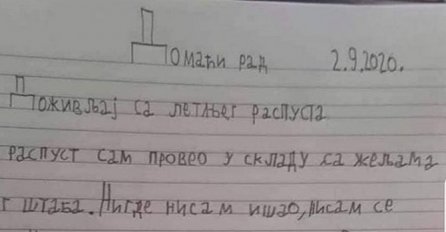 Домаћи рад 2.9.2020.
Доживљај са летњег распуста
распуст сам провео у складу са жељама
г штаба. Нигде нисам ишао, нисам се